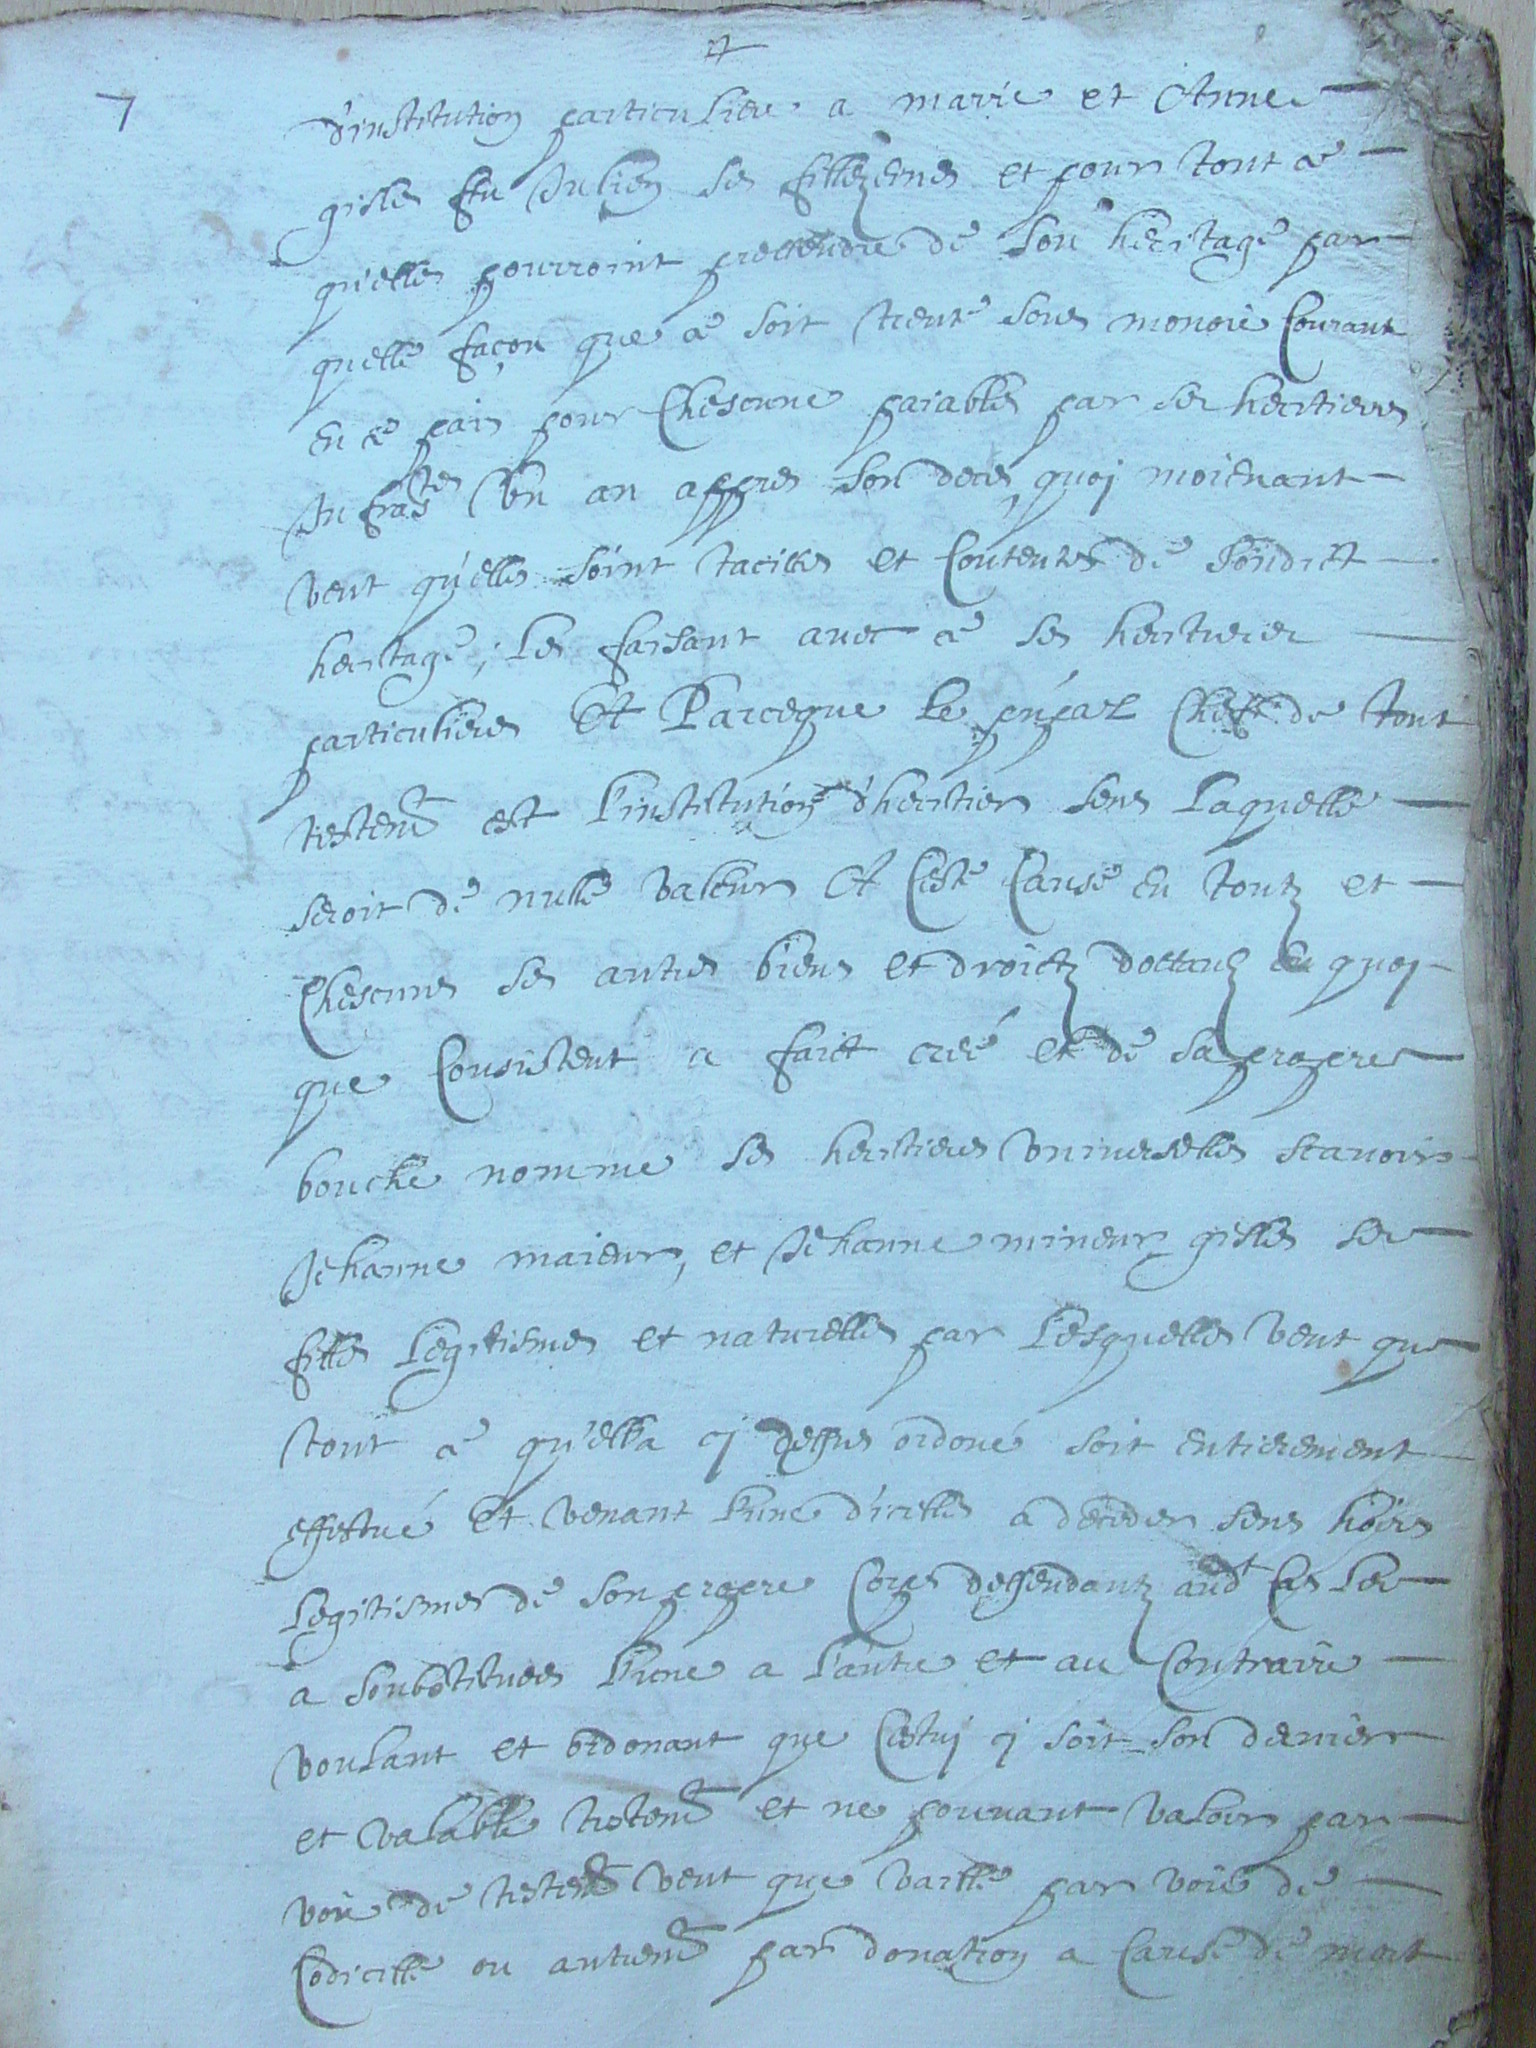 et
7
d'institution particuliere a marie et Anne
gilles feu Julien ses fillezenes et pour tout ce
qu'elles pourroint prettendre de son heritage par
quelle façon que ce soit trente sous monoie Courant
en ce pais pour Chescune paiables par ses heritieres
Infras tes Un an appres son deces, quoj moienant
veut qu'elles soint tacittes et Contentes de sondict
heritage, les faisant avec ce ses heritieres
particulieres Et Parceque le pnpal Cheff de tout
testemt est l'institution d'heritier sens laquelle
seroit de nulle valeur Et Ceste Cause en toutz et
Chescuns ses autres biens et droictz en quoj
que Consistent a faict creé et de sa propre
bouche nomme ses heritieres universelles scavoir
Jehanne maieur, et Jehanne mineur gilles ses
filles legitismes et naturelles par lesquelles veut que
tout ce qu'ella cj dessus ordoné soit entierement
effectué et venant l'une d'icelles a deceder sens hoirs
legitismes de son propre Corps dessendantz audt Cas les
a soubstituees l'une a l'autre et au Contraire
voulant et ordonant que Cestuj cj soit son dernier
et valable testemt et ne pouvant valoir par
voie de testemt veut que vaille par voie de
Codicille ou autremt par donation a Cause de mort